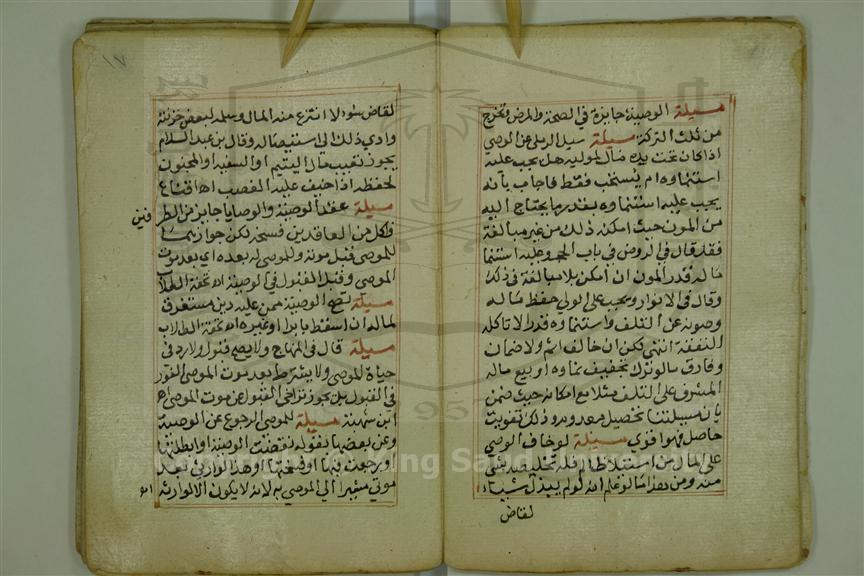 مسيلة الوصية جايزة في الصحة والمرض وتخرج
من ثلث التركة مسيلة سيل الرملي عن الوصي
اذا كان تحت يده مال لموليه هل يجب عليه
استنماوه ام يستحب فقط فاجاب بانه
يجب عليه استنماوه بقدر ما يحتاج اليه
من المون حيث امكنه ذلك من غير مبالغة
فقد قال في الروض في باب الحجر وعليه استنما
ماله قدر المون ان امكن بلا مبالغة في ذلك
وقال في الانوار ويجب على الولي حفظ ماله
وصونه عن التلف واستنماوه قدر الا تاكله
النفقة انتهى لكن ان خالف اثم ولا ضمان
وفارق ما لو ترك تخفيف نماوه او بيع ماله
المشرف على التلف مثلا مع امكانه حيث ضمن
بان مسيلتنا تحصيل معدوم وذلك تفويت
حاصل فهو اقوى مسيلة لو خاف الوصي
على المال من استيلا ظالم فله تخليصه بشي
منه ومن هذا ما لو علم انه لو لم يبذل شياء
لقاض
١٧
لقاض سوء لا انتزع منه المال وسلمه لبعض خونته
وادي ذلك الى استيصاله وقال بن عبد السلام
يجوز تعييب مال اليتيم او السفيه او المجنون
لحفظه اذا خيف عليه الغصب اه اقناع
مسيلة عقد الوصية والوصايا جايز من الطر
فين
فلكل من العاقدين فسخه لكن جوازهما
للموصي قبل موته وللموصى له بعده اي بعد موت
الموصي وقبل القبول في الوصية اه تحفة الطلاب
مسيلة تصح الوصية ممن عليه دين مستغرق
لماله ان اسقط بابرا او غيره اه تحفة الطلاب
مسيلة قال في المنهاج ولا يصح قبول ولا رد في
حياة الموصي ولا يشترط بعد موت الموصي الفور
في القبول بل يجوز تراخي القبول عن موت الموصي اه
ابن شهبة مسيلة للموصي الرجوع عن الوصية
وعن بعضها بقوله نقضت الوصية او ابطلتها
او رجعت فيها او فسختها او هذا لوارثي بعد
موتي مشيرا الى الموصى به لانه لا يكون الا لوارثه